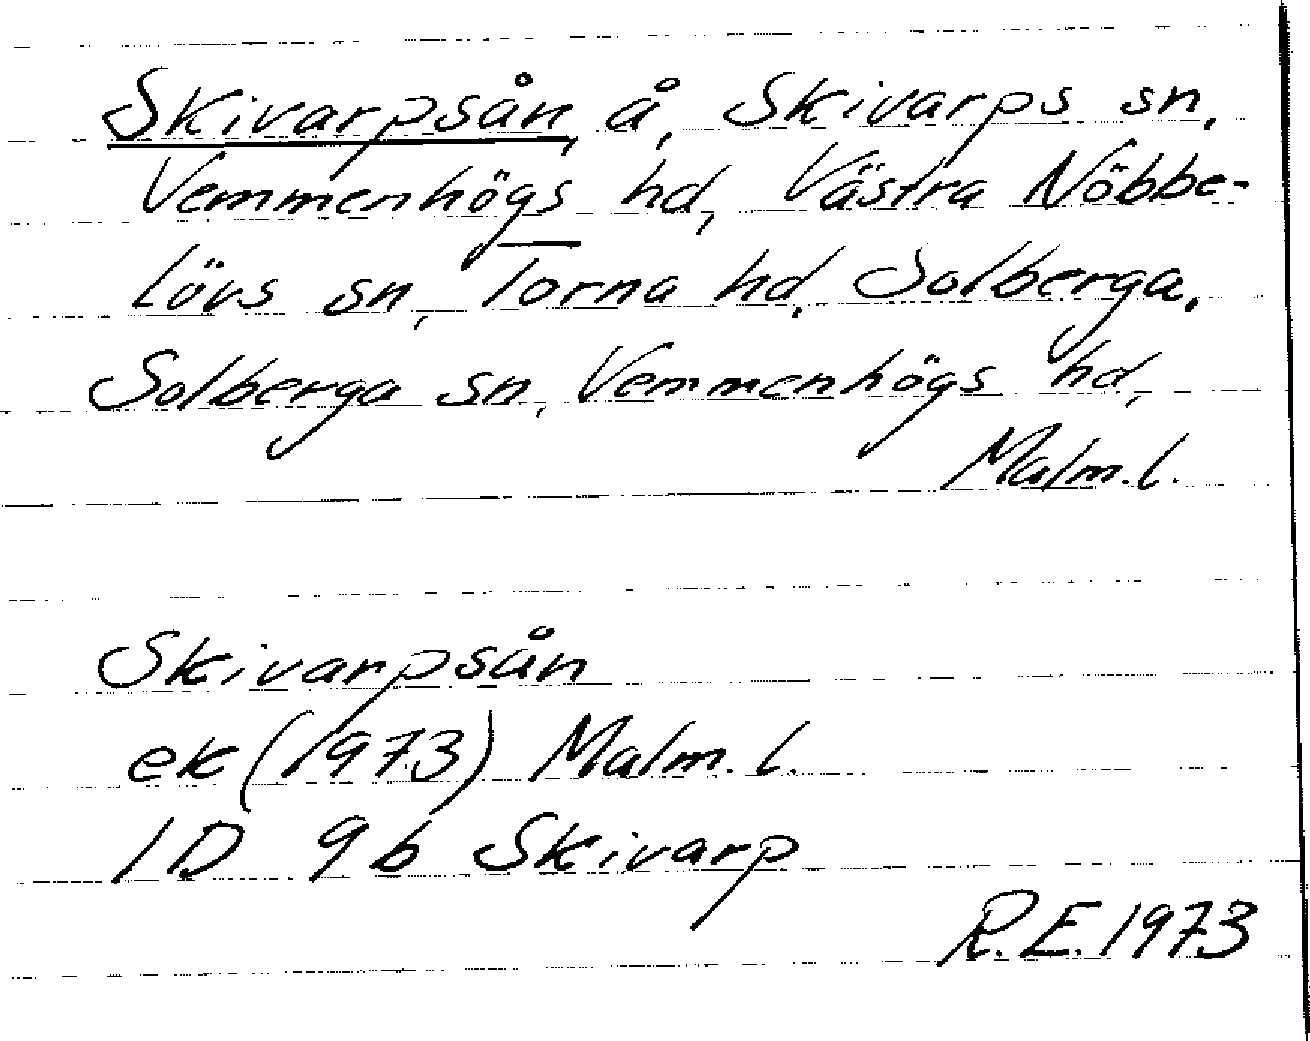 Skivarpsån, å, Skivarps sn,
Vemmenhögs hd, Västra Nöbbe-
lövs sn, Torna hd, Solberga,
Solberga sn, Vemmenhögs hd,
Malm.l.
Skivarpsån
ek (1973) Malm.l.
1D 9b Skivarp
R.E. 1973